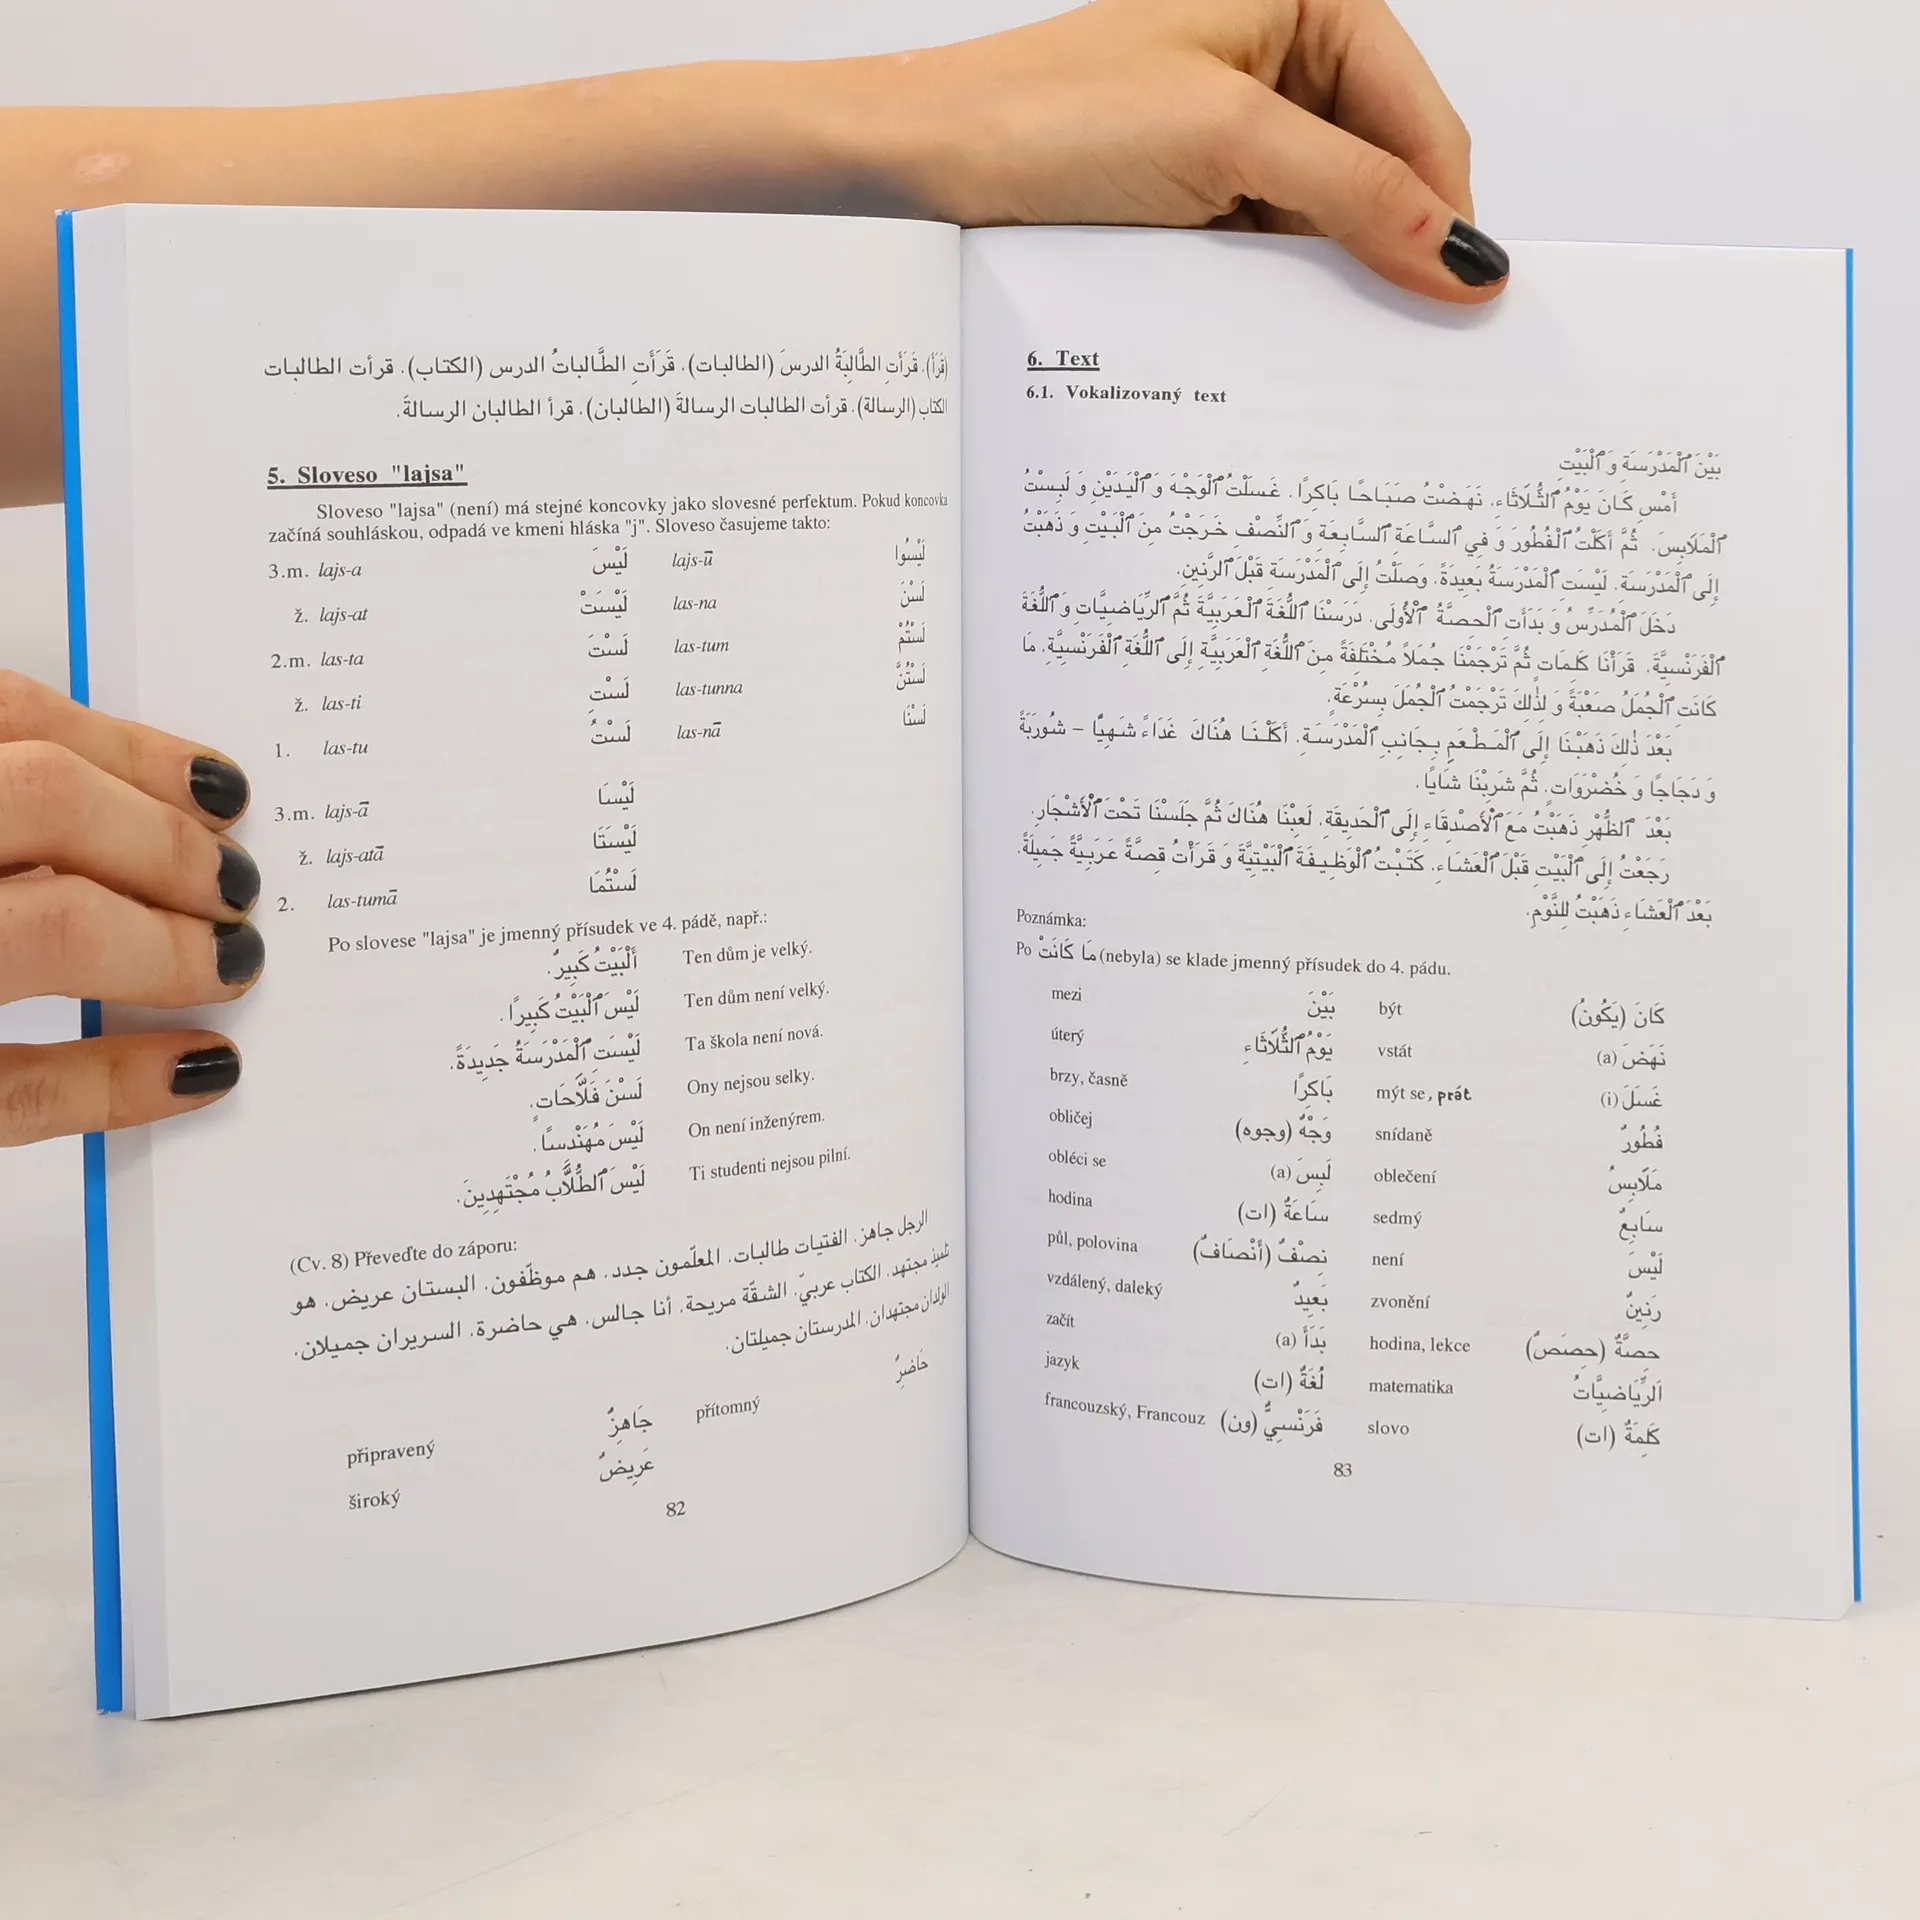 (قرأ). قَرَأَتِ الطَّالِبَةُ الدرسَ (الطالبات). قَرَأَتِ الطَّالباتُ الدرس (الكتاب). قرأت الطالبات
الكتاب (الرسالة). قرأت الطالبات الرسالةَ (الطالبان). قرأ الطالبان الرسالةَ.
5. Sloveso "lajsa"
Sloveso "lajsa" (není) má stejné koncovky jako slovesné perfektum. Pokud koncovka
začíná souhláskou, odpadá ve kmeni hláska "j". Sloveso časujeme takto:
3.m. lajs-a لَيْسَ lajs-ū لَيْسُوا
ž. lajs-at لَيْسَتْ las-na لَسْنَ
2.m. las-ta لَسْتَ las-tum لَسْتُمْ
ž. las-ti لَسْتِ las-tunna لَسْتُنَّ
1. las-tu لَسْتُ las-nā لَسْنَا
3.m. lajs-ā لَيْسَا
ž. lajs-atā لَيْسَتَا
2. las-tumā لَسْتُمَا
Po slovese "lajsa" je jmenný přísudek ve 4. pádě, např.:
أَلْبَيْتُ كَبِيرٌ. Ten dům je velký.
لَيْسَ ٱلْبَيْتُ كَبِيرًا. Ten dům není velký.
لَيْسَتِ ٱلْمَدْرَسَةُ جَدِيدَةً. Ta škola není nová.
لَسْنَ فَلَّاحَاتٍ. Ony nejsou selky.
لَيْسَ مُهَنْدسًا. On není inženýrem.
لَيْسَ ٱلطُّلَّابُ مُجْتَهِدِينَ. Ti studenti nejsou pilní.
(Cv. 8) Převeďte do záporu:
الرجل جاهز. الفتيات طالبات. المعلّمون جدد. هم موظّفون. البستان عريض. هو
تلميذ مجتهد. الكتاب عربيّ. الشقّة مريحة. أنا جالس. هي حاضرة. السريران جميلان.
الولدان مجتهدان. المدرستان جميلتان.
připravený جَاهِزٌ přítomný حَاضِرٌ
široký عَرِيضٌ
82
6. Text
6.1. Vokalizovaný text
بَيْنَ ٱلْمَدْرَسَةِ وَ ٱلْبَيْتِ
أَمْسِ كَانَ يَوْمُ ٱلثُّلَاثَاءِ. نَهَضْتُ صَبَاحًا بَاكِرًا. غَسَلْتُ ٱلْوَجْهَ وَ ٱلْيَدَيْنِ وَ لَبِسْتُ
ٱلْمَلَابِسَ. ثُمَّ أَكَلْتُ ٱلْفُطُورَ وَ فِي ٱلسَّاعَةِ ٱلسَّابِعَةِ وَ ٱلنِّصْفِ خَرَجْتُ مِنَ ٱلْبَيْتِ وَ ذَهَبْتُ
إِلَى ٱلْمَدْرَسَةِ. لَيْسَتِ ٱلْمَدْرَسَةُ بَعِيدَةً. وَصَلْتُ إِلَى ٱلْمَدْرَسَةِ قَبْلَ ٱلرَّنِينِ.
دَخَلَ ٱلْمُدَرِّسُ وَ بَدَأَتِ ٱلْحِصَّةُ ٱلْأُولَى. دَرَسْنَا ٱللُّغَةَ ٱلْعَرَبِيَّةَ ثُمَّ ٱلرِّيَاضِيَّاتِ وَ ٱللُّغَةَ
ٱلْفَرَنْسِيَّةَ. قَرَأْنَا كَلِمَاتٍ ثُمَّ تَرْجَمْنَا جُمَلاً مُخْتَلِفَةً مِنَ ٱللُّغَةِ ٱلْعَرَبِيَّةِ إِلَى ٱللُّغَةِ ٱلْفَرَنْسِيَّةِ. مَا
كَانَتِ ٱلْجُمَلُ صَعْبَةً وَ لِذٰلِكَ تَرْجَمْتُ ٱلْجُمَلَ بِسُرْعَةٍ.
بَعْدَ ذٰلِكَ ذَهَبْنَا إِلَى ٱلْمَطْعَمِ بِجَانِبِ ٱلْمَدْرَسَةِ. أَكَلْنَا هُنَاكَ غَدَاءً شَهِيًّا – شُورَبَةً
وَ دَجَاجًا وَ خُضْرَوَاتٍ. ثُمَّ شَرِبْنَا شَايًا.
بَعْدَ ٱلظُّهْرِ ذَهَبْتُ مَعَ ٱلْأَصْدِقَاءِ إِلَى ٱلْحَدِيقَةِ. لَعِبْنَا هُنَاكَ ثُمَّ جَلَسْنَا تَحْتَ ٱلْأَشْجَارِ.
رَجَعْتُ إِلَى ٱلْبَيْتِ قَبْلَ ٱلْعَشَاءِ. كَتَبْتُ ٱلْوَظِيفَةَ ٱلْبَيْتِيَّةَ وَ قَرَأْتُ قِصَّةً عَرَبِيَّةً جَمِيلَةً.
بَعْدَ ٱلْعَشَاءِ ذَهَبْتُ لِلنَّوْمِ.
Poznámka:
Po مَا كَانَتْ (nebyla) se klade jmenný přísudek do 4. pádu.
mezi بَيْنَ být كَانَ (يَكُونُ)
úterý يَوْمُ ٱلثُّلَاثَاءِ vstát نَهَضَ (a)
brzy, časně بَاكِرًا mýt se, prát غَسَلَ (i)
obličej وَجْهٌ (وجوه) snídaně فُطُورٌ
obléci se لَبِسَ (a) oblečení مَلَابِسُ
hodina سَاعَةٌ (ات) sedmý سَابِعٌ
půl, polovina نِصْفٌ (أَنْصَافٌ) není لَيْسَ
vzdálený, daleký بَعِيدٌ zvonění رَنِينٌ
začít بَدَأَ (a) hodina, lekce حِصَّةٌ (حِصَصٌ)
jazyk لُغَةٌ (ات) matematika اَلرِّيَاضِيَّاتُ
francouzský, Francouz فَرَنْسِيٌّ (ون) slovo كَلِمَةٌ (ات)
83